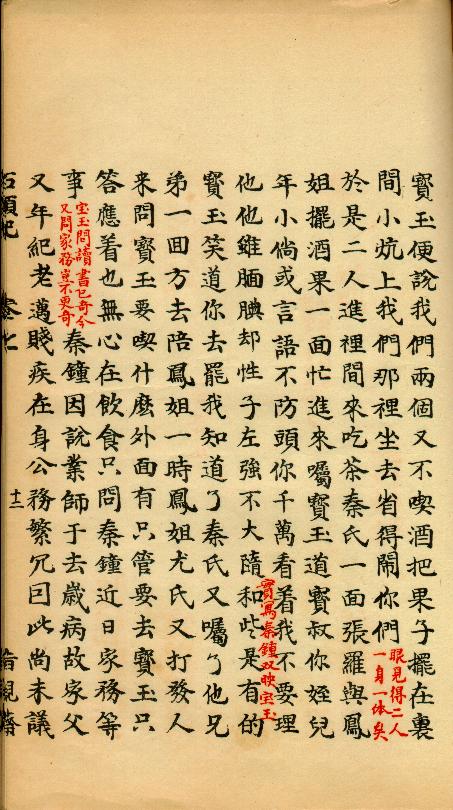 寳玉便說我們兩個又不喫酒把果子擺在裏
間小炕上我們那裡坐去省得鬧你們
眼見得二人
一身一体矣
於是二人進裡間來吃茶秦氏一面張羅與鳳
姐擺酒果一面忙進來囑寳玉道寳叔你姪兒
年小倘或言語不防頭你千萬看着我不要理
他他雖腼腆却性子左強不大隨和此是有的
實寫秦鍾双映宝玉
寳玉笑道你去罷我知道了秦氏又囑了他兄
弟一回方去陪鳳姐一時鳳姐尤氏又打發人
来問寳玉要喫什麽外面有只管要去寳玉只
答應着也無心在飲食只問秦鍾近日家務等
事
宝玉問讀書已奇今
又問家務豈不更奇
秦鐘因說業師于去歲病故家父
又年紀老邁賤疾在身公務繁冗因此尚未議
石頭記 卷七 十二 脂硯齋